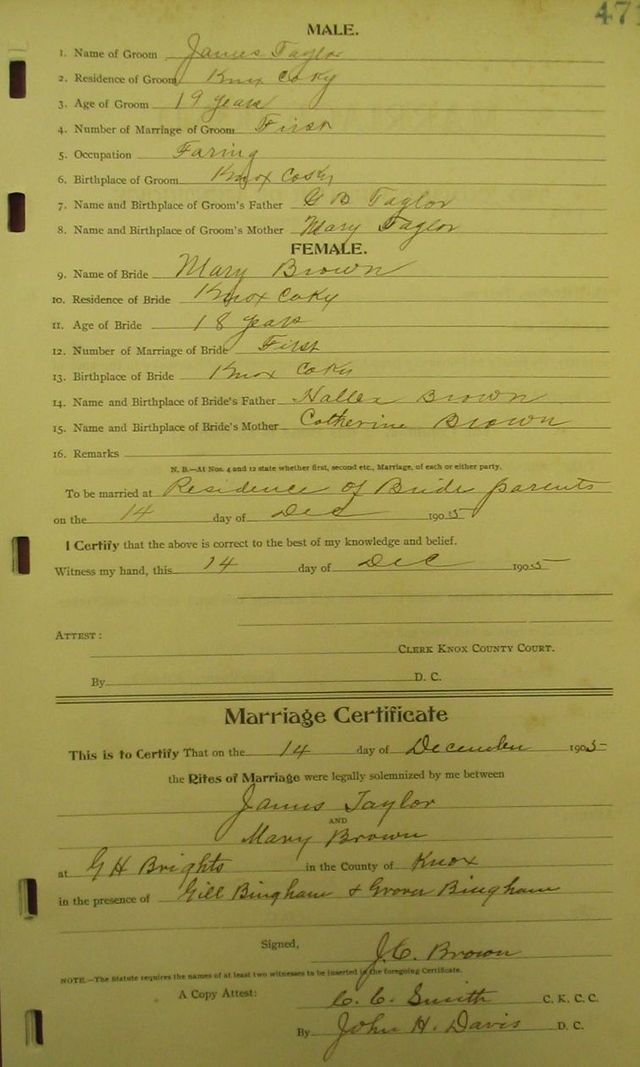 471
MALE.
1. Name of Groom James Taylor
2. Residence of Groom Knox Co Ky
3. Age of Groom 19 years
4. Number of Marriage of Groom First
5. Occupation Faring
6. Birthplace of Groom Knox Co Ky
7. Name and Birthplace of Groom's Father G B Taylor
8. Name and Birthplace of Groom's Mother Mary Taylor
FEMALE.
9. Name of Bride Mary Brown
10. Residence of Bride Knox Co Ky
11. Age of Bride 18 years
12. Number of Marriage of Bride First
13. Birthplace of Bride Knox Co Ky
14. Name and Birthplace of Bride's Father Brown
15. Name and Birthplace of Bride's Mother Catherine Brown
16. Remarks
N. B.—At Nos. 4 and 12 state whether first, second etc., Marriage, of each or either party.
To be married at Residence of Bride parents
on the 14 day of Dec 1905
I Certify that the above is correct to the best of my knowledge and belief.
Witness my hand, this 14 day of Dec 1905
ATTEST:
CLERK KNOX COUNTY COURT.
By D. C.
Marriage Certificate
This is to Certify That on the 14 day of December 1905
the Rites of Marriage were legally solemnized by me between
James Taylor
AND
Mary Brown
at G H Brights in the County of Knox
in the presence of Gill Bingham & Grover Bingham
Signed, J.C. Brown
NOTE.—The Statute requires the names of at least two witnesses to be inserted in the foregoing Certificate.
A Copy Attest: C. C. Smith C. K. C. C.
By John H. Davis D. C.